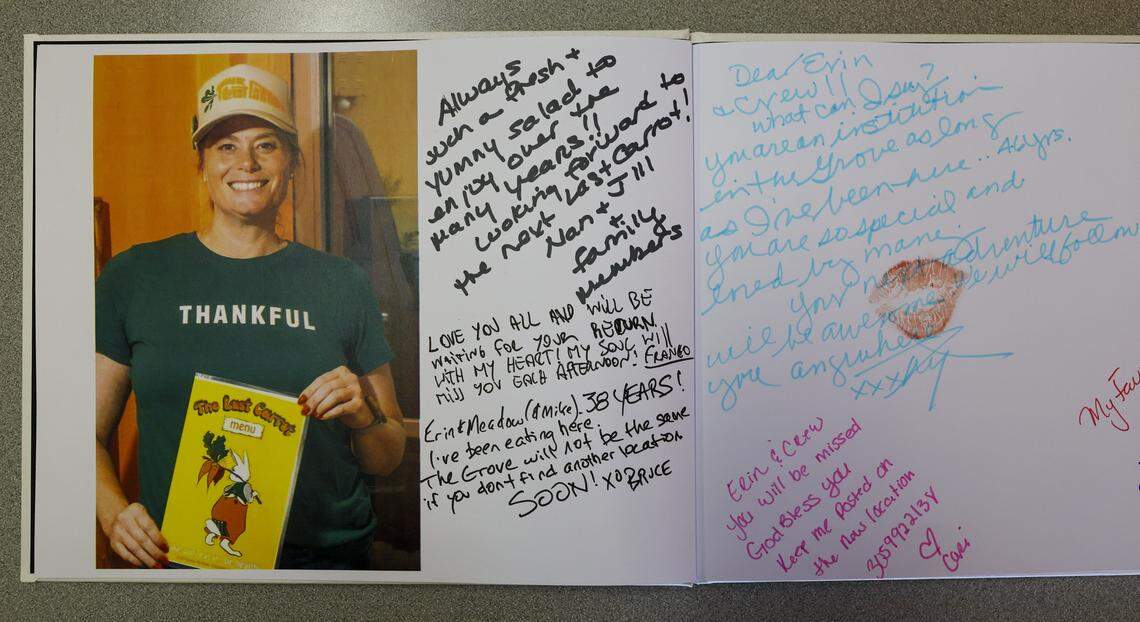 THANKFUL
The Last Carrot
menu
Always
such a fresh +
yummy salad to
enjoy over the
many years!!
Looking forward to
the next Last Carrot!
Nan + Jill
+
family
members
LOVE YOU ALL AND WILL BE
WAITING FOR YOUR RETURN
WITH MY HEART! MY SOUL WILL
MISS YOU EACH AFTERNOON! FRANCO
Erin & Meadow (& Mike). 38 YEARS!
I've been eating here.
The Grove will not be the same
if you don't find another location
SOON! XO BRUCE
Dear Erin
& Crew!!
what can I say?
you are an institution
in the Grove as long
as I've been here.. 46 yrs.
you are so special and
loved by many.
Your next adventure
will be awesome we will follow
you anywhere
xxx
Erin & Crew
you will be missed
God Bless you
Keep me posted on
the new location
3059922138
Cari
My Fav